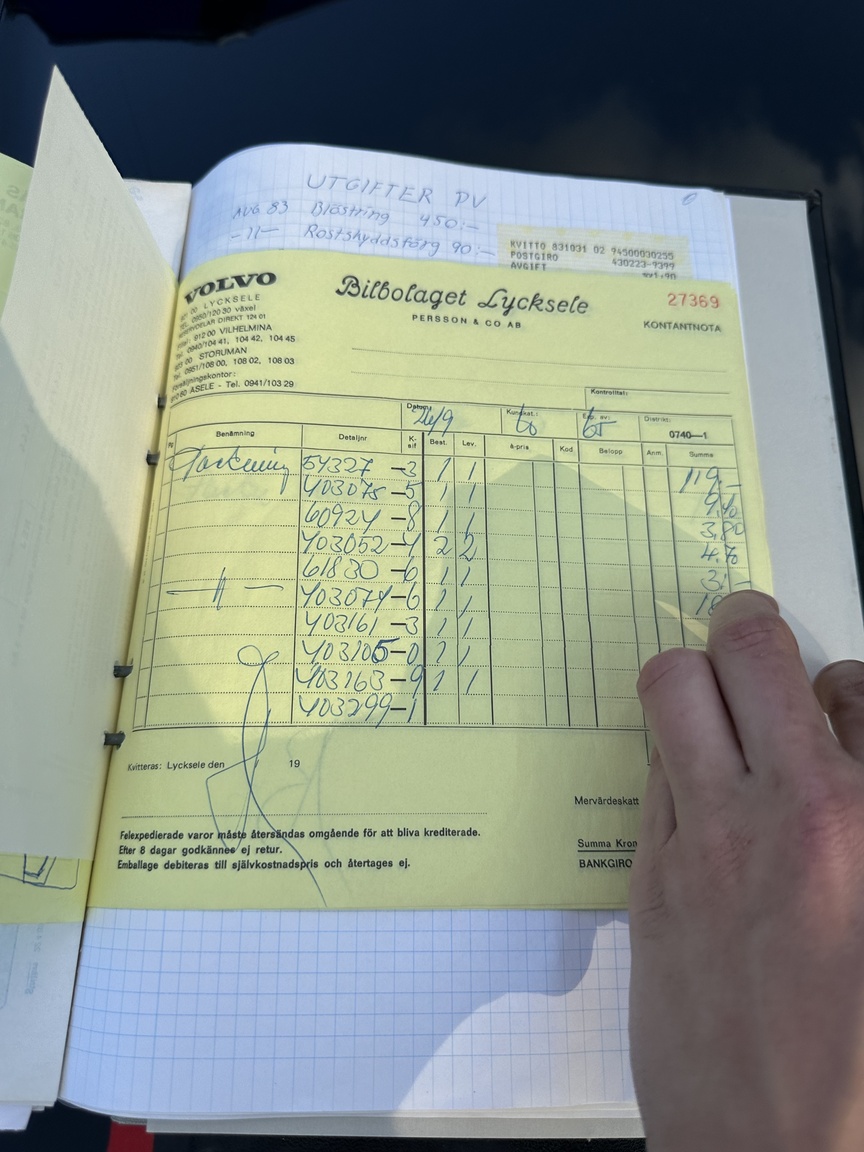 UTGIFTER PV
AUG 83 Blästring 450:-
-11- Rostskyddsfärg 90:-
KVITTO 831031 02 94500030255
POSTGIRO 430223-9399
AVGIFT
VOLVO
Bilbolaget Lycksele
PERSSON & CO AB
27369
KONTANTNOTA
00 LYCKSELE
0950/120 30 växel
RESERVDELAR DIREKT 124 01
912 00 VILHELMINA
Tel. 0940/104 41, 104 42, 104 45
923 00 STORUMAN
Tel. 0951/108 00, 108 02, 108 03
Försäljningskontor:
910 60 ÅSELE - Tel. 0941/103 29
Kontrolltal:
Datum: 26/9 Kundkat.: Exp. av: Distrikt:
0740—1
Benämning Detaljnr K-sif Best. Lev. à-pris Kod Belopp Anm. Summa
Packning 54327 -3 1 1 119,-
403075 -5 1 1 9,40
60924 -8 1 1 3,80
403052 -4 2 2 4,70
61830 -6 1 1 31,-
-11- 403074 -6 1 1 18
403161 -3 1 1
403105 -0 1 1
403163 -9 1 1
403299 -1
Kvitteras: Lycksele den 19
Mervärdeskatt
Felexpedierade varor måste återsändas omgående för att bliva krediterade.
Efter 8 dagar godkännes ej retur.
Emballage debiteras till självkostnadspris och återtages ej.
Summa Kron
BANKGIRO